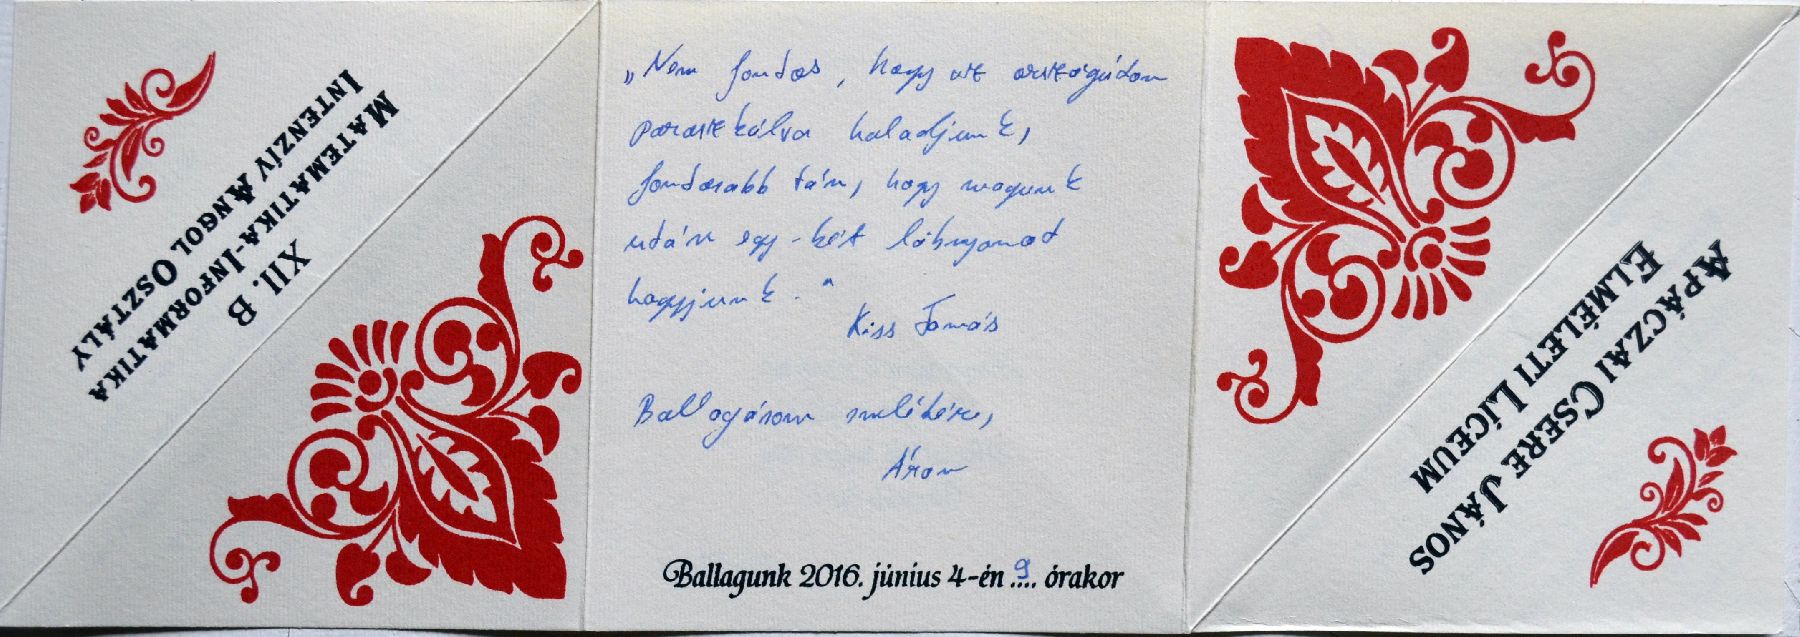 XII. B
MATEMATIKA-INFORMATIKA
INTENZÍV ANGOL OSZTÁLY
„Nem fontos, hogy az országúton
parasztkálva haladjunk,
fontosabb tán, hogy magunk
után egy-két lábnyomot
hagyjunk."
Kiss Tamás
Ballagásom emlékére,
Áron
Ballagunk 2016. június 4-én 9 órakor
APÁCZAI CSERE JÁNOS
ELMÉLETI LÍCEUM